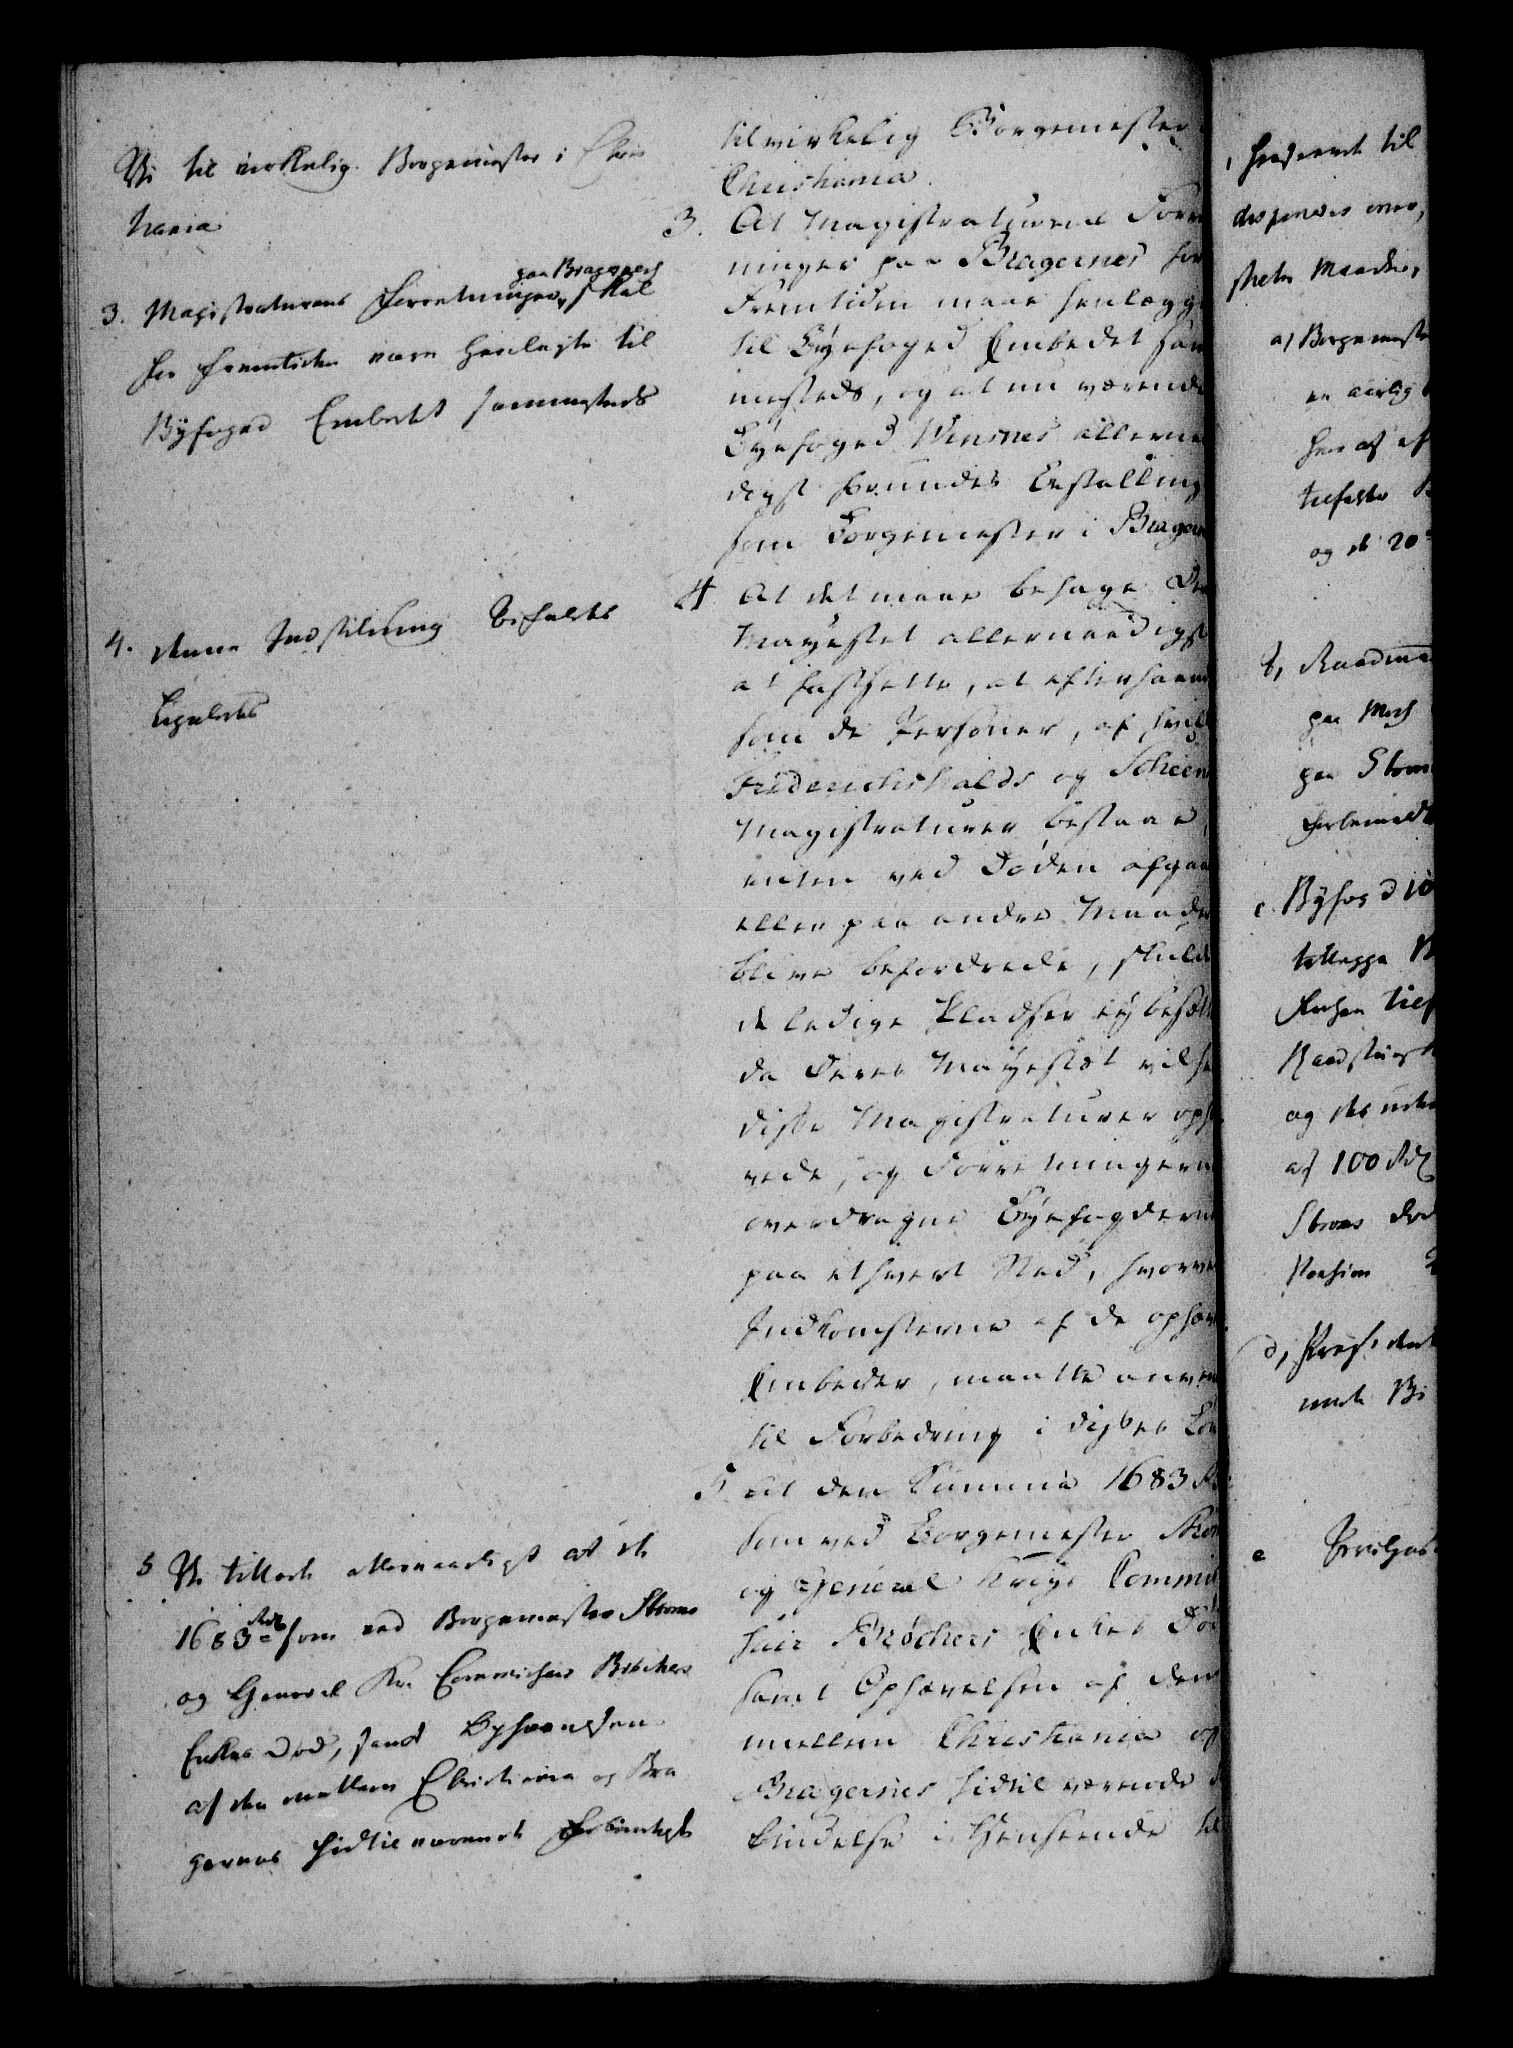 Vi til virkelig Borgemester i Chris
tiania
3. Magistraturens Forretninger paa Bragernes skal
for Fremtiden være henlagte til
Byfoged Embedet sammesteds
4. denne Indstilling bifaldes
ligeledes
5 Vi tillade allernaadigst at de
1683 Rdl som ved Borgemester Stroms
og General Kr. Commissair Brøchers
Enkes Død, samt Ophævelsen
af den mellem Christiania og Bra
gernes hidtil værende Forbindelse
til virkelig Borgemester
Christiania.
3. At Magistraturens Forret
ninger paa Bragernes for
Fremtiden maae henlægge
til Byefoged Embedet sam
mesteds, og at nu værende
Byefoged Wensnes allernaa
digst forundes Bestalling
som Borgemester i Bragern
4 At det maae behage De
Mayestet allernaadigst
at fastsette, at efterhaand
som de Personer, af hvilk
Friderichshalds og Scheens
Magistraturer bestaae,
enten ved Døden afgaae
eller paa andre Maader
blive befordrede, skulde
de ledige Pladser ey besætt
da Deres Mayestæt vil ha
disse Magistraturer ophæ
vede, og Forretningerne
overdragne Byefogderne
paa ethvert Sted, hvorved
Indkomsterne af de ophæv
Embeder, maatte anven
til Forbedring i disses Løn
5 At den Summa 1683 R
som ved Borgemester Strøm
og General Krigs Commis
sair Brøchers Enkes Død
samt Ophævelsen af den
mellem Christiania og
Bragernes hidtil værende
bindelse i Henseende til
, henseende til
disponeres over,
a) Borgemester
en aarlig
og de 20
b, Raadma
paa Moss
paa Strom
c. Byfoged
tillægge
Raadstue
af 100 Rdl
Stroms Død
Pension
d, President
e